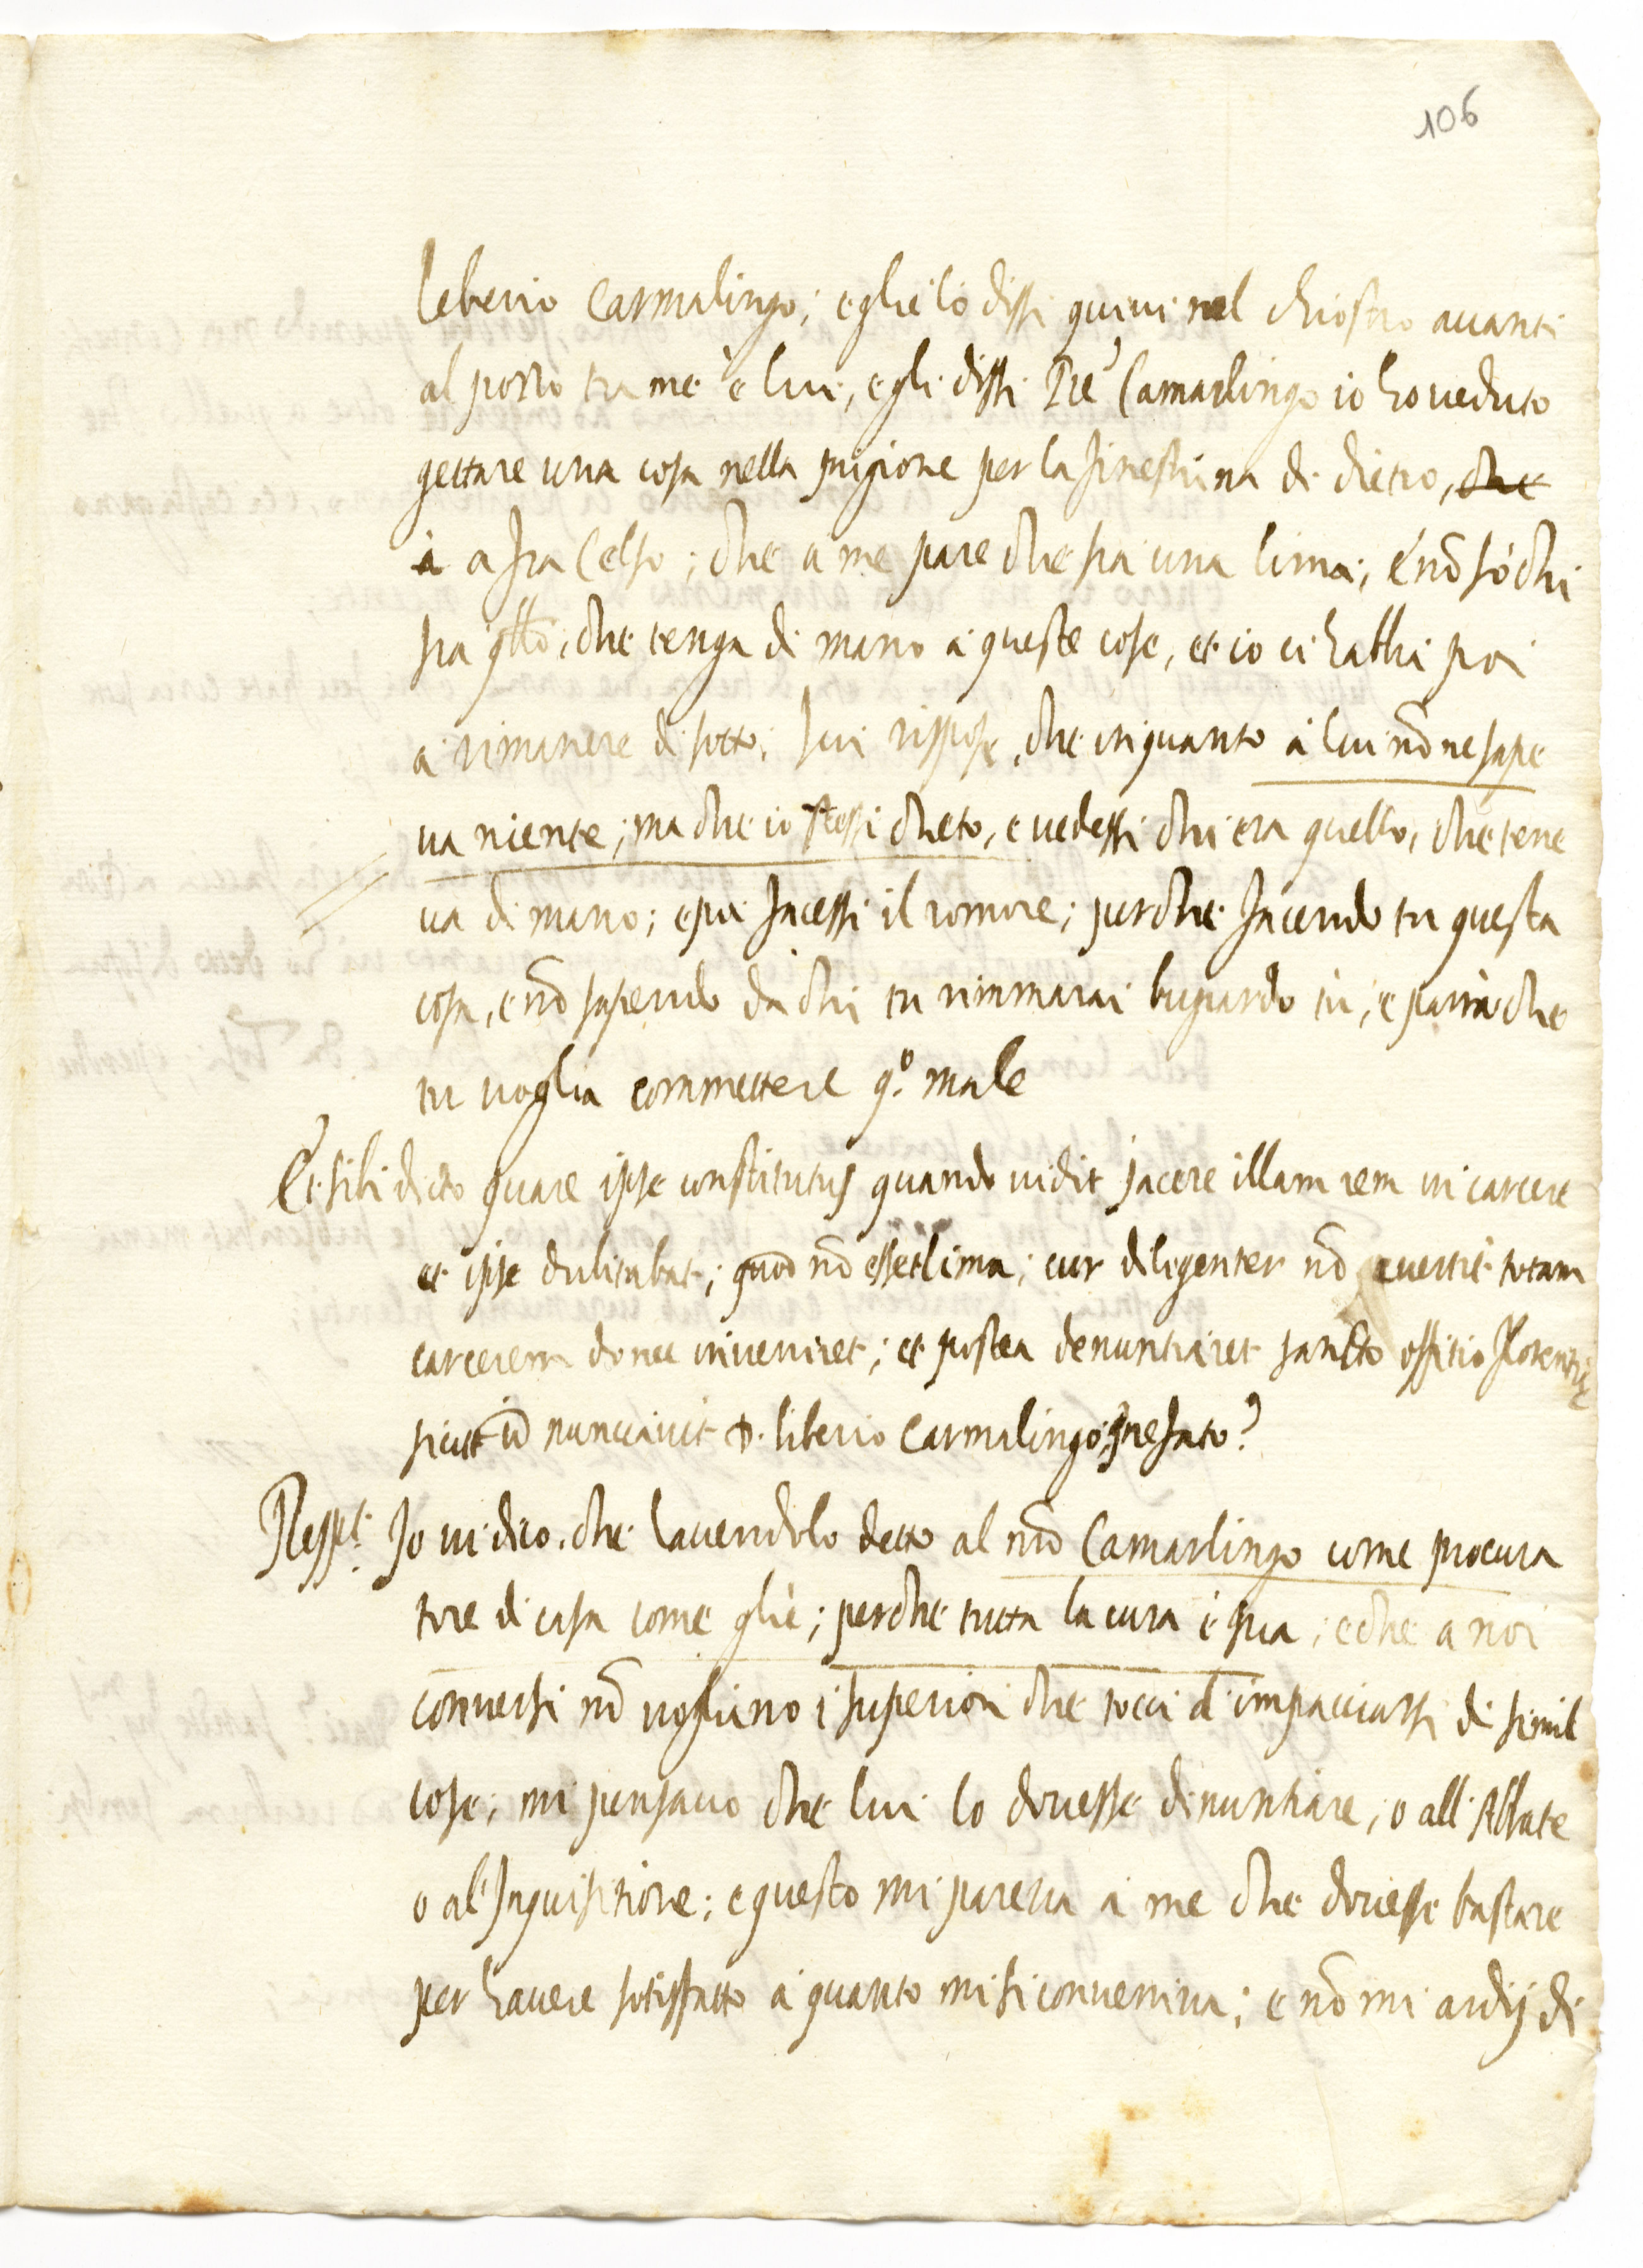 106
leberio Carmalingo; e glie lo dissi quivi nel chiostro avanti
al pozzo tra me e lui, e gli dissi Pre Camarlingo io ho veduto
gettare una cosa nella prigione per la finestrina di dietro, che
à a fra Celso; che a me pare che sia una lima; e nõ sò chi
sia qllo, che tenga di mano a queste cose, et io ci habbi poi
a rimanere di sotto; lui rispose, che inquanto à lui nõ ne sape
va niente; ma che io stessi cheto, e vedessi chi era quello, che tene
va di mano; e poi facessi il romore; perche facendo tu questa
cosa, e nõ sapendo da chi tu rimmarai bugiardo tu, e parrà che
tu voglia commettere q.o male
Et sibi dicto quare ipse constitutus quando vidit jacere illam rem in carcere
et ipse dubitabat; quod nõ esset lima; cur diligenter nõ evertit totam
carcerem donec inveniret; et postea denuntiaret sancto offitio Florentiæ
sicut nunciavit D. liberio Carmalingo prefato?
Respt. Io vi dico, che havendolo detto al nro Camarlingo come procura
tore di casa come gliè; perche tutta la cura è sua; e che a noi
conversi nõ vogliono i superiori che tocci d'impacciarsi di simil
cose; mi pensavo che lui lo dovesse dinuntiare, o all'Abbate
o al'Inquisitiore; e questo mi pareva à me che dovesse bastare
per havere sotisfatto à quanto mi si conveniva; e nõ mi ardij di